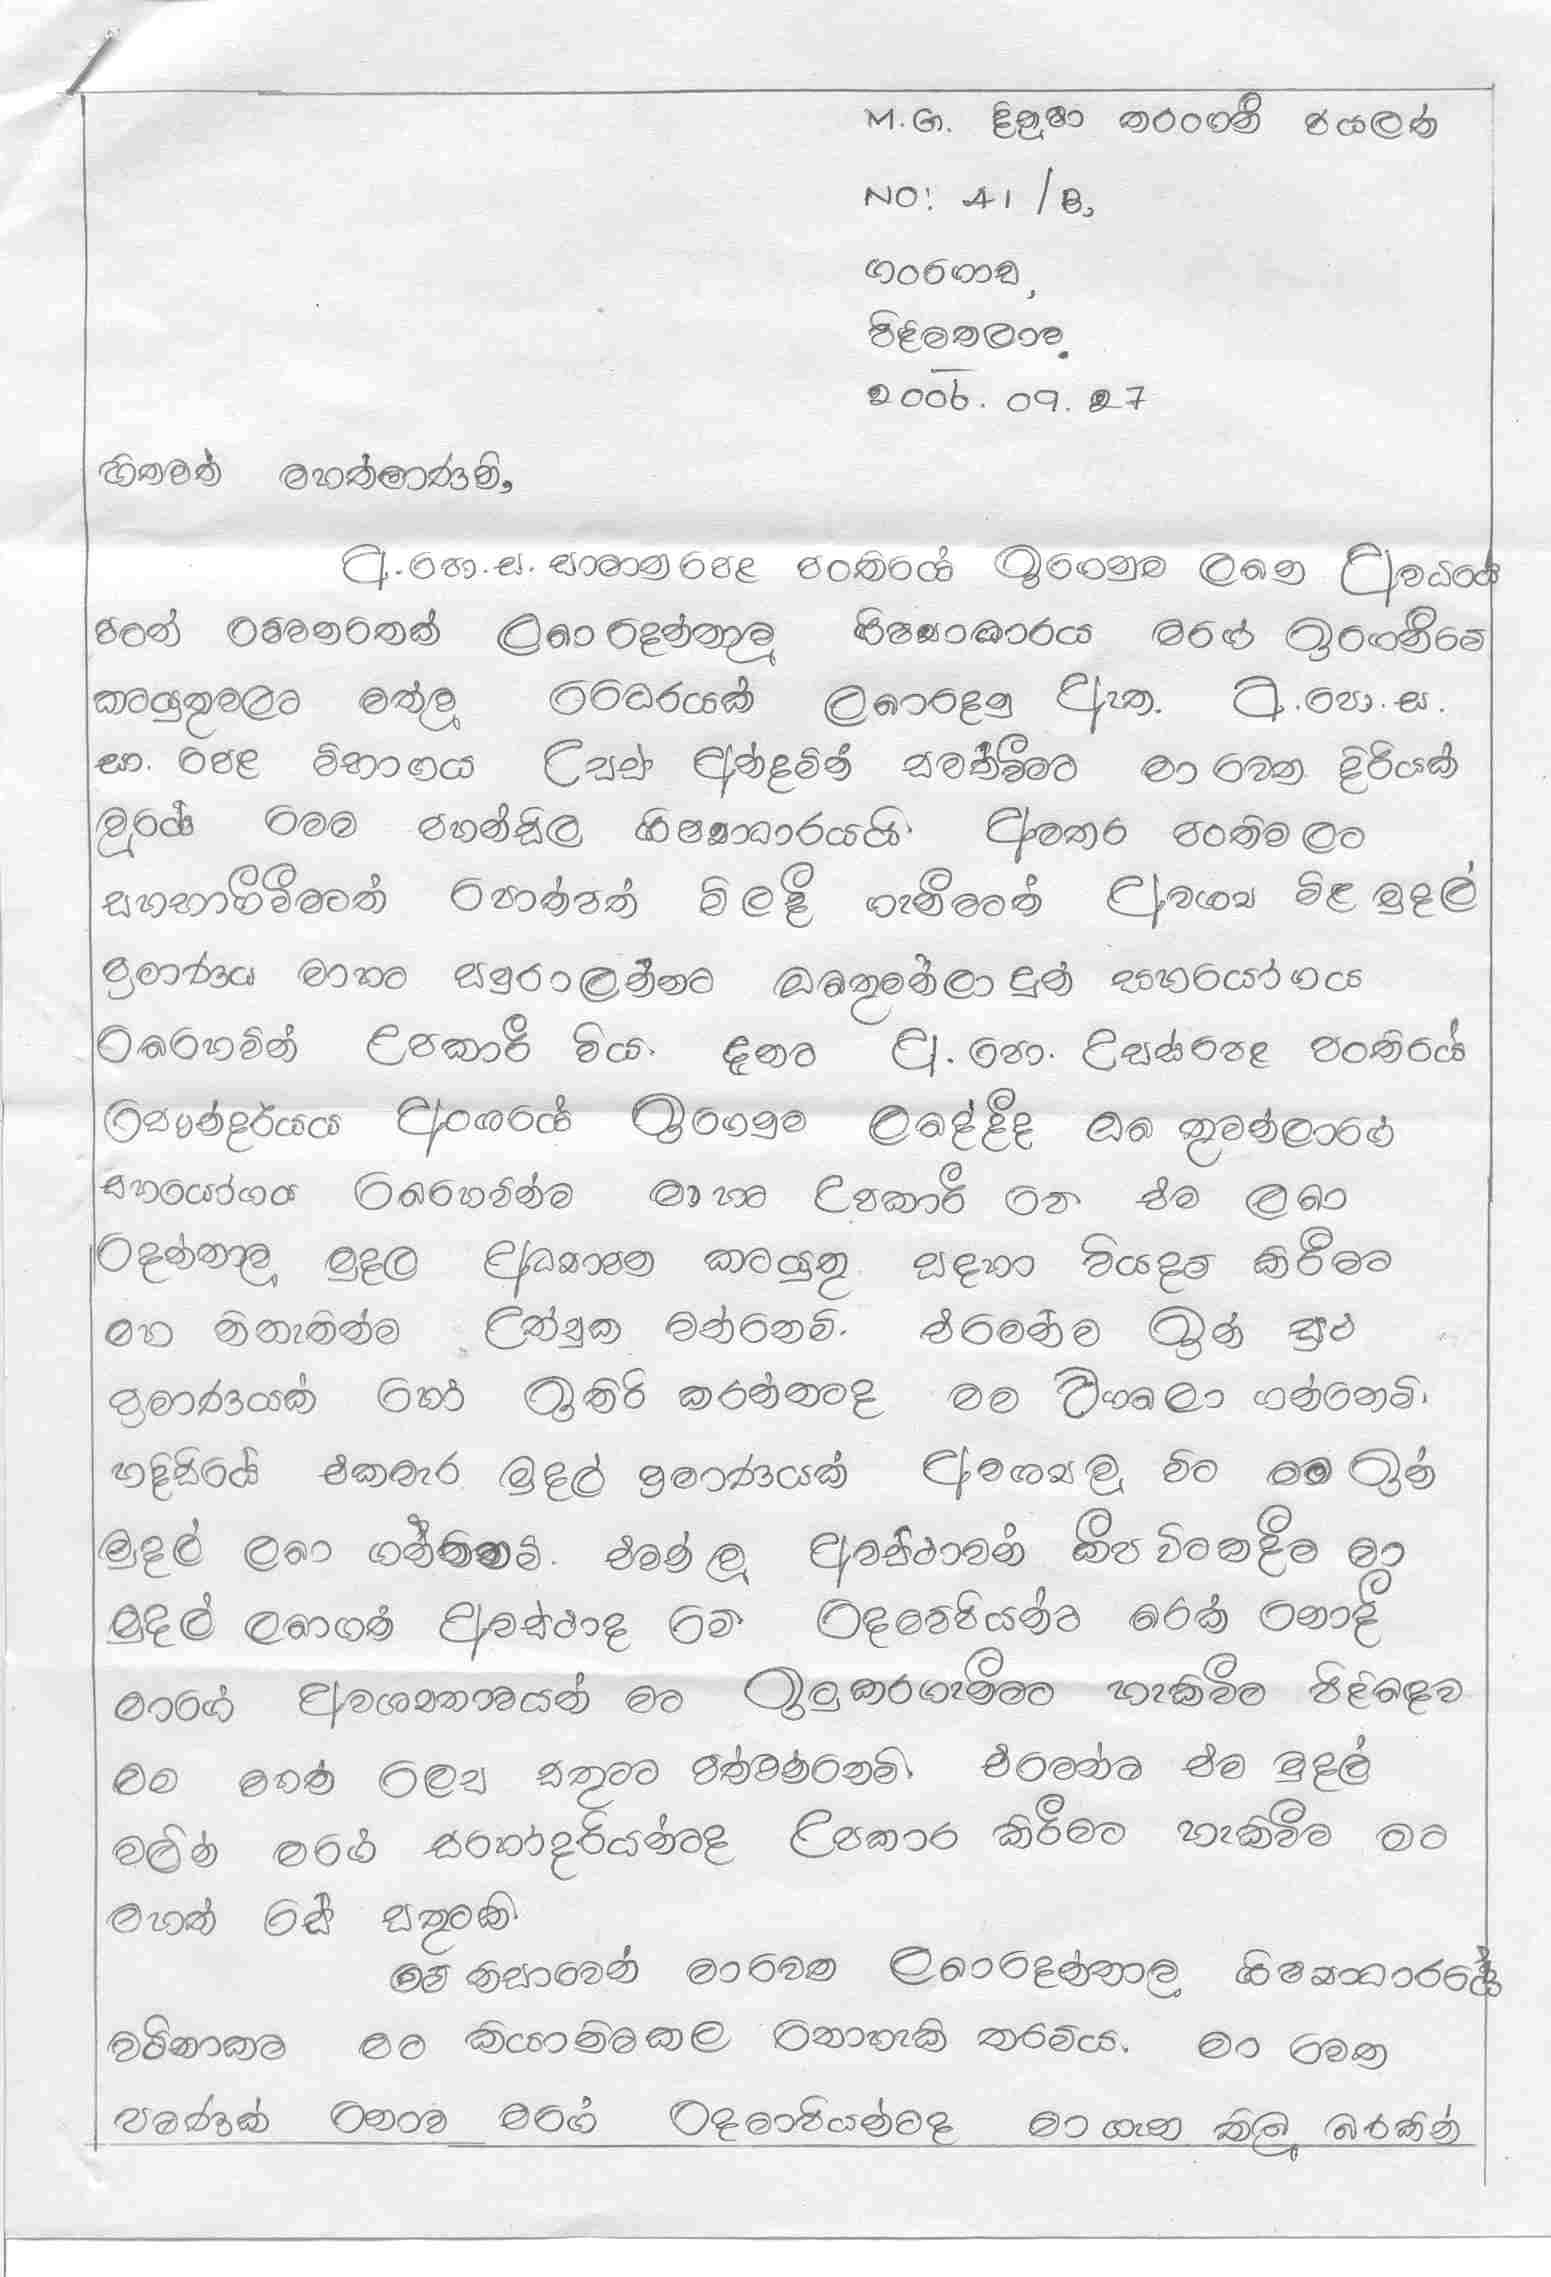 M.G. දිනූෂා තරංගනී ජයලත්
NO: 41/B,
ගංගොඩ,
පිළිමතලාව.
2006. 09. 27
හිතවත් මහත්මාණනි,
අ.පො.ස. සාමාන පෙළ පංතියේ ඉගෙනුම ලබන අවධියේ
පටන් මෙතෙක් ලබා දෙන්නාවූ ශිෂ්‍යාධාරය මගේ ඉගෙනීමේ
කටයුතුවලට මත්වූ ධෛර්යක් ලබාදෙනු ඇත. අ.පො.ස.
සා. පෙළ විභාගය උසස් අන්දමින් සමත්වීමට මා වෙත දිරියක්
වූයේ මෙම පහන්සිල ශිෂ්‍යාධාරයයි. අමතර පංතිවලට
සහභාගීවීමටත් පොත්පත් මිලදී ගැනීමටත් අවශ්‍ය විළ මුදල්
ප්‍රමාණය මාහට සපුරාලන්නට ඔබතුමන්ලා දුන් සහයෝගය
බෙහෙවින් උපකාරී විය. දනට අ.පො. උසස්පෙළ පංතියේ
සෞන්දර්යය අංශයේ ඉගෙනුම ලබද්දීද ඔබ තුමන්ලාගේ
සහයෝගය බෙහෙවින්ම මාහට උපකාරී වේ. එම ලබා
දෙන්නාවූ මුදල අධ්‍යාපන කටයුතු සඳහා වියදම් කිරීමට
මහ නිතැතින්ම උත්සුක වන්නෙමි. එමෙන්ම ඉන් සුළු
ප්‍රමාණයක් හෝ ඉතිරි කරන්නටද මම වගබලා ගන්නෙමි.
හදිසියේ එකවැර මුදල් ප්‍රමාණයක් අවශ්‍යවූ විට මම ඉන්
මුදල් ලබා ගන්නෙමි. එවන් වූ අවස්ථාවන් කීප විටකදීම මා
මුදල් ලබාගත් අවස්ථාද වේ. දෙමව්පියන්ට බරක් නොදී
මාගේ අවශ්‍යතාවයන් මට ඉටුකරගැනීමට හැකිවීම පිළිබඳව
මම මහත් ලෙස සතුටට පත්වන්නෙමි. එමෙන්ම එම මුදල්
වලින් මගේ සහෝදරියන්ටද උපකාර කිරීමට හැකිවීම මට
මහත් සේ සතුටකි.
මේ නිසාවෙන් මාවෙත ලබාදෙන්නාවූ ශිෂ්‍යාධාරයේ
වටිනාකම මට කියානිමකල නොහැකි තරම්ය. මා වෙත
පමණක් නොව මගේ දෙමාපියන්ටද මා ගැන තිබූ බරකින්